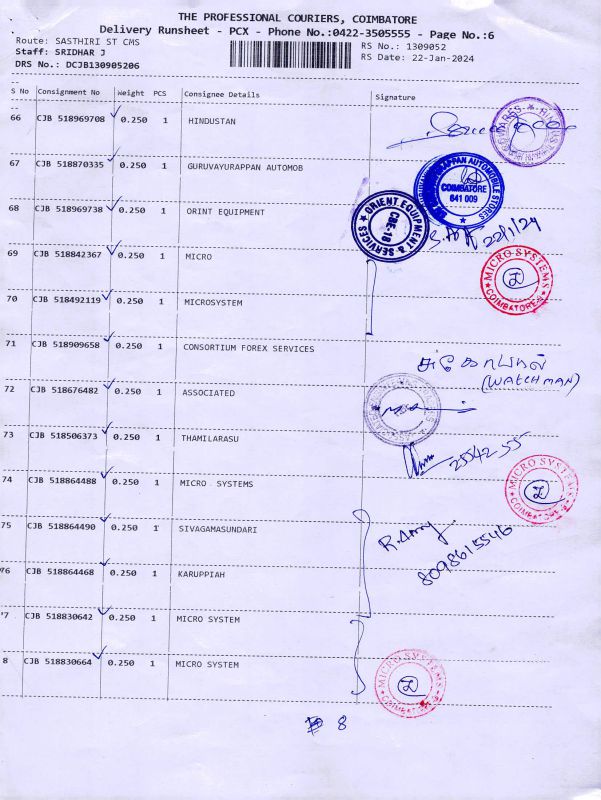 THE PROFESSIONAL COURIERS, COIMBATORE
Delivery Runsheet - PCX - Phone No.:0422-3505555 - Page No.:6
Route: SASTHIRI ST CMS
RS No.: 1309052
Staff: SRIDHAR J
RS Date: 22-Jan-2024
DRS No.: DCJB130905206
S No Consignment No Weight PCS Consignee Details Signature
66 CJB 518969708 0.250 1 HINDUSTAN
67 CJB 518870335 0.250 1 GURUVAYURAPPAN AUTOMOB
COIMBATORE
641 009
68 CJB 518969738 0.250 1 ORINT EQUIPMENT
ORIENT EQUIPMENT & SERVICES
CBE-18
22/1/24
69 CJB 518842367 0.250 1 MICRO
MICRO SYSTEMS
COIMBATORE
70 CJB 518492119 0.250 1 MICROSYSTEM
71 CJB 518909658 0.250 1 CONSORTIUM FOREX SERVICES
(WATCHMAN)
72 CJB 518676482 0.250 1 ASSOCIATED
73 CJB 518506373 0.250 1 THAMILARASU
2554255
74 CJB 518864488 0.250 1 MICRO SYSTEMS
MICRO SYSTEMS
75 CJB 518864490 0.250 1 SIVAGAMASUNDARI
8098615546
76 CJB 518864468 0.250 1 KARUPPIAH
7 CJB 518830642 0.250 1 MICRO SYSTEM
8 CJB 518830664 0.250 1 MICRO SYSTEM
MICRO SYSTEMS
COIMBATORE
8